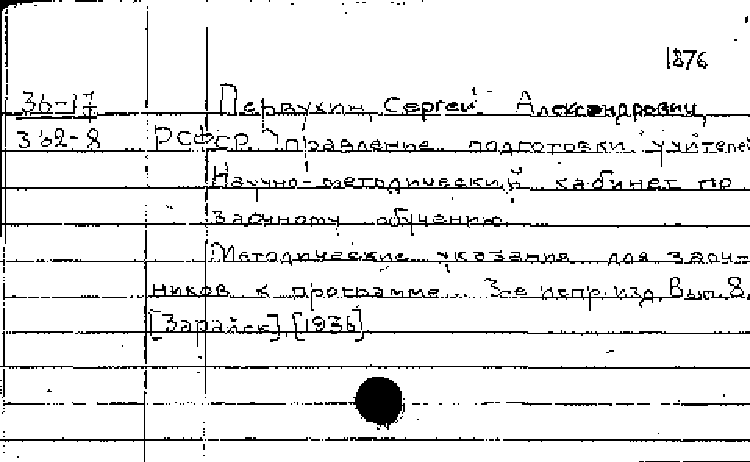 1876
36-17
362-8
Первухин, Сергей Александрович
РСФСР. Управление подготовки учителей
Научно-методический кабинет по
заочному обучению.
Методические указания для заоч-
ников к программе. 3-е испр. изд. Вып. 8.
[Зарайск], [1936].